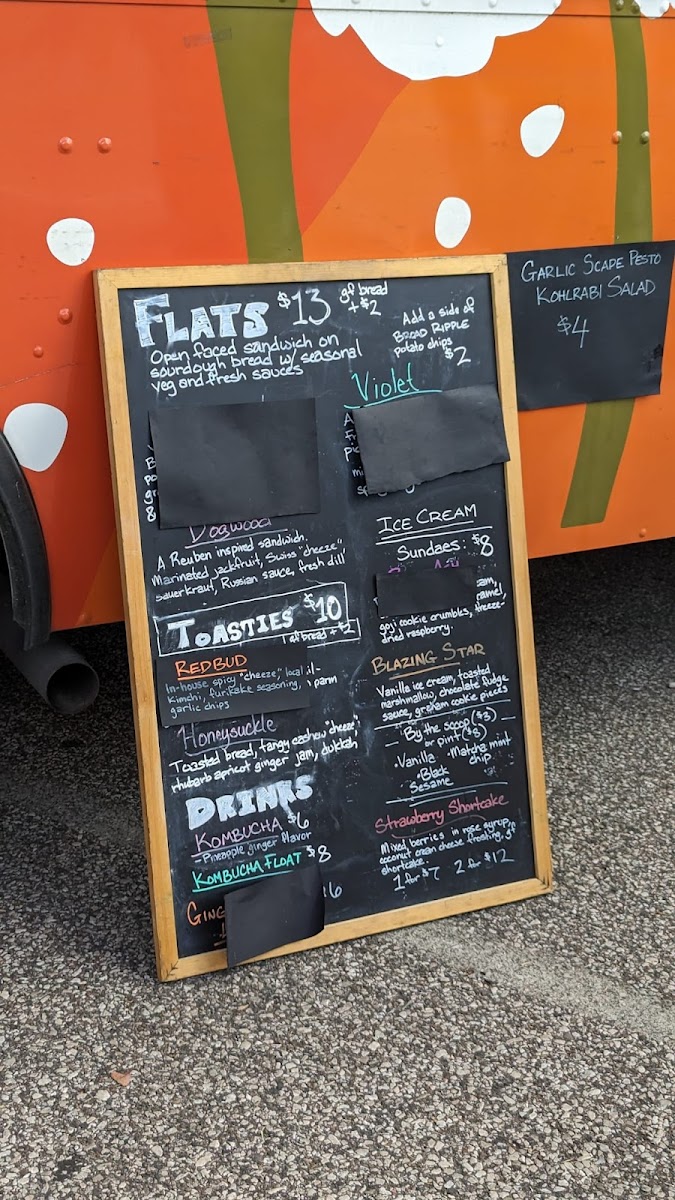 FLATS $13 gf bread + $2
Open faced sandwich on
sourdough bread w/ seasonal
veg and fresh sauces
Add a side of
BROAD RIPPLE
potato chips
$2
Violet
Dogwood
A Reuben inspired sandwich.
Marinated jackfruit, Swiss "cheeze"
sauerkraut, Russian sauce, fresh dill
TOASTIES $10
gf bread + $2
REDBUD
In-house spicy "cheeze," local
kimchi, furikake seasoning,
garlic chips
parm
Honeysuckle
Toasted bread, tangy cashew "cheeze",
rhubarb apricot ginger jam, dukkah
DRINKS
KOMBUCHA $6
-Pineapple ginger flavor
KOMBUCHA FLOAT $8
GING
6
ICE CREAM
Sundaes: $8
goji cookie crumbles, freeze-
dried raspberry.
BLAZING STAR
Vanilla ice cream, toasted
marshmallow, chocolate fudge
sauce, graham cookie pieces
By the scoop ($3)
or pint ($8)
·Vanilla ·Matcha mint
chip
·Black
Sesame
Strawberry Shortcake
Mixed berries in rose syrup,
coconut cream cheese frosting, gf
shortcake.
1 for $7 2 for $12
GARLIC SCAPE PESTO
KOHLRABI SALAD
$4